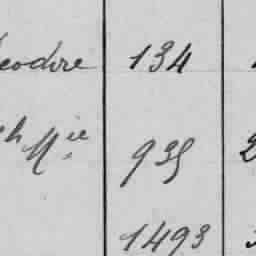 eodore 134
h Mie 935
1493